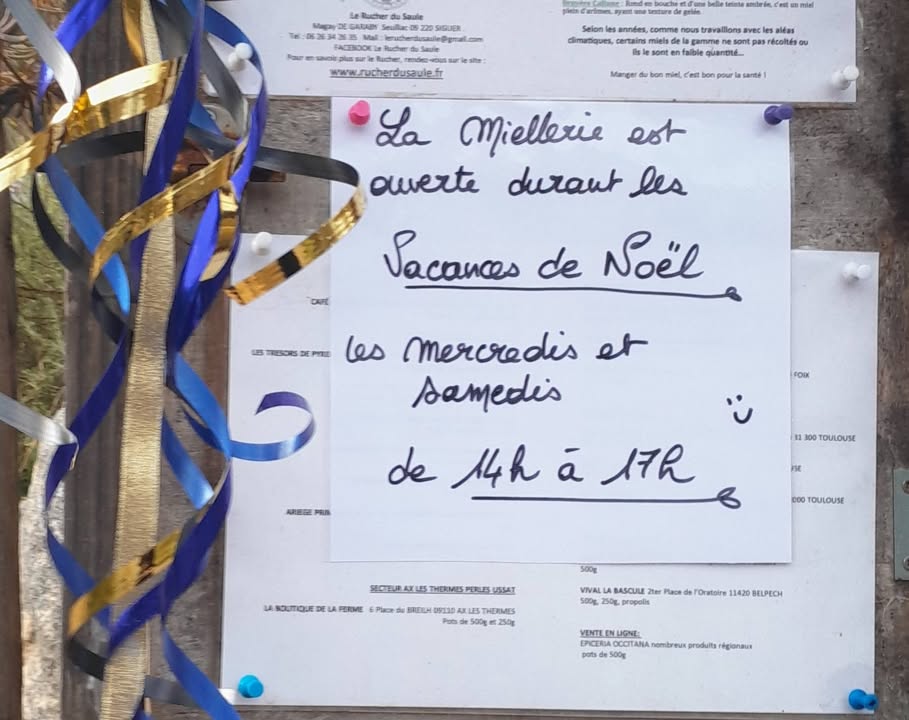 Le Rucher du Saule
Magay DE GARABY Seuillac 09 220 SIGUER
Tel : 06 26 34 26 35 Mail : lerucherdusaule@gmail.com
FACEBOOK Le Rucher du Saule
Pour en savoir plus sur le Rucher, rendez-vous sur le site :
www.rucherdusaule.fr
Bruyère Callune : fond en bouche et d'une belle teinte ambrée, c'est un miel
plein d'arômes, ayant une texture de gelée.
Selon les années, comme nous travaillons avec les aléas
climatiques, certains miels de la gamme ne sont pas récoltés ou
ils le sont en faible quantité...
Manger du bon miel, c'est bon pour la santé !
La Miellerie est
ouverte durant les
Vacances de Noël
les Mercredis et
samedis
de 14h à 17h
CAFÉ
LES TRESORS DE PYRE
ARIEGE PRIM
FOIX
31 300 TOULOUSE
000 TOULOUSE
SECTEUR AX LES THERMES PERLES USSAT
LA BOUTIQUE DE LA FERME 6 Place du BREILH 09110 AX LES THERMES
Pots de 500g et 250g
500g
VIVAL LA BASCULE 2ter Place de l'Oratoire 11420 BELPECH
500g, 250g, propolis
VENTE EN LIGNE:
EPICERIA OCCITANA nombreux produits régionaux
pots de 500g